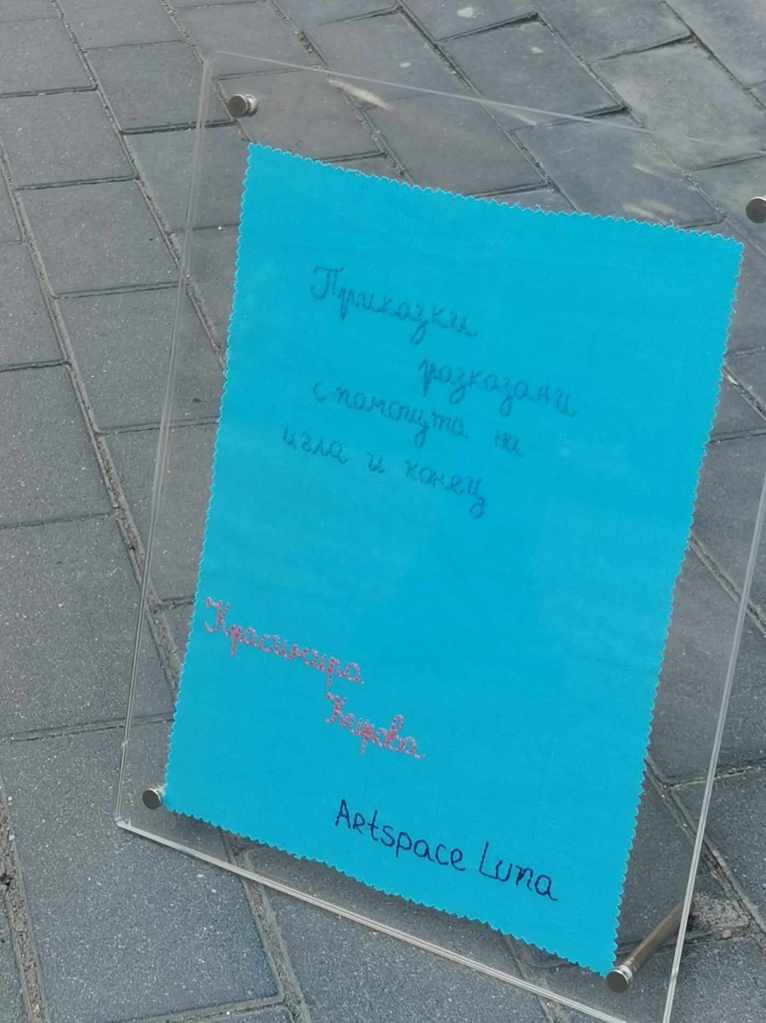 Приказки
разказани
с помощта на
игла и конец
Красимира
Кирова
Artspace Luna